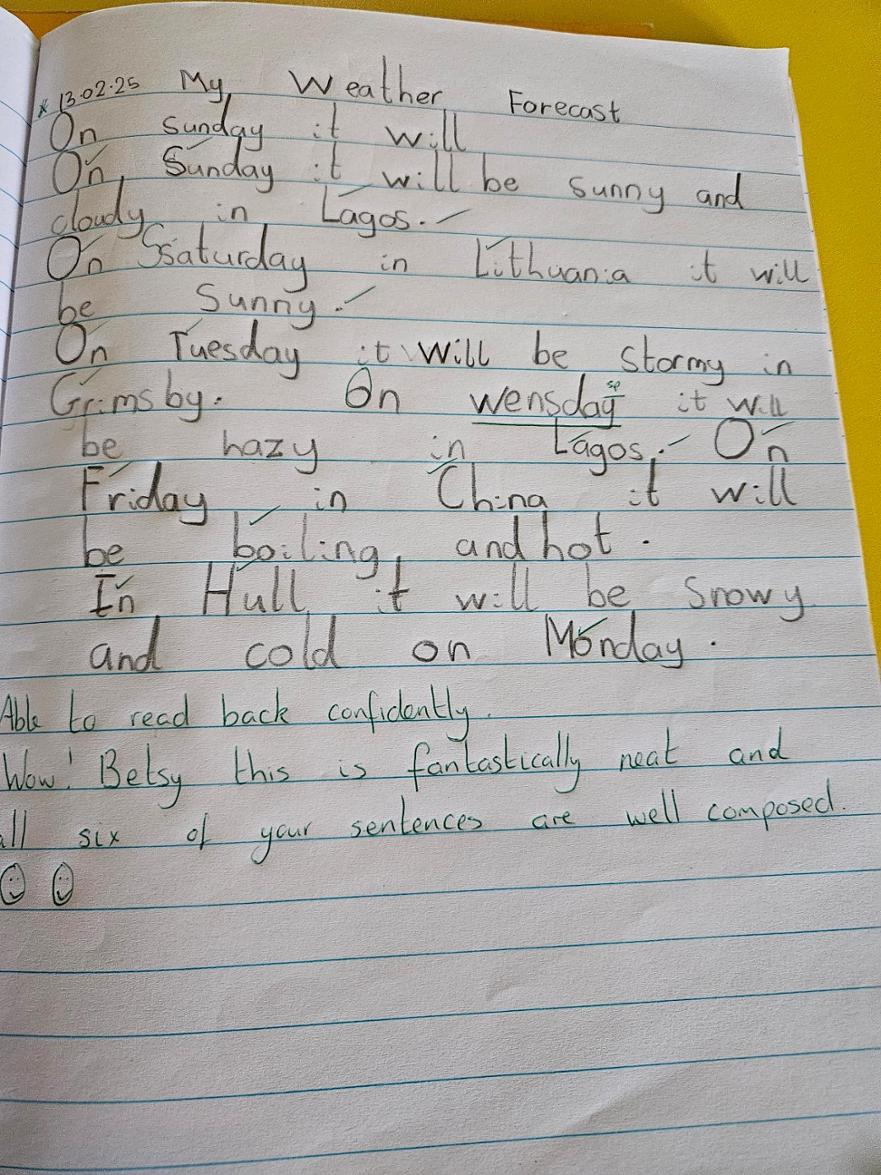 * 13.02.25 My Weather Forecast
On sunday it will
On Sunday it will be sunny and
cloudy in Lagos.
On Ssaturday in Lithuania it will
be sunny.
On Tuesday it will be stormy in
Grimsby. On wensday sp it will
be hazy in Lagos. On
Friday in China it will
be boiling and hot.
In Hull it will be Snowy
and cold on Monday.
Able to read back confidently.
Wow! Betsy this is fantastically neat and
all six of your sentences are well composed.